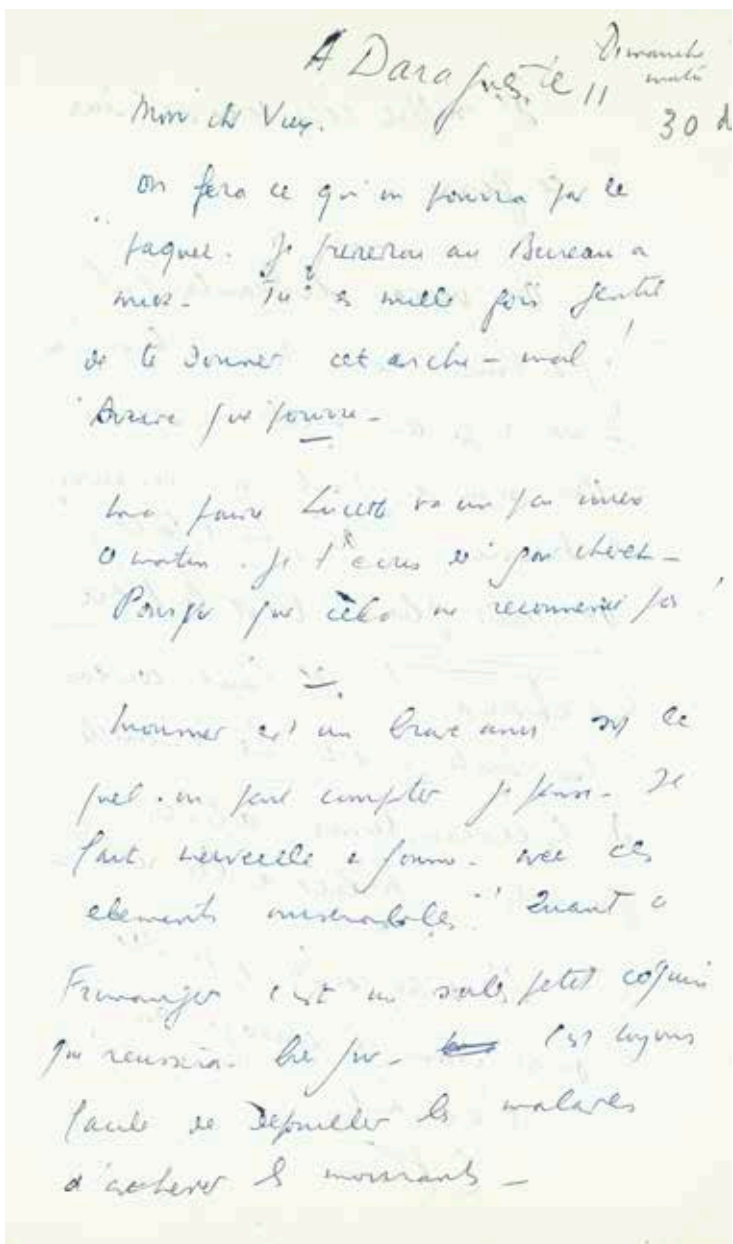 A Daragnès Dimanche
matin
11 30
Mon ch Vieux.
On fera ce qu'on pourra pr le
paquet. Je passerai au Bureau a
Tu es mille fois gentil
de te donner cet archi-mal !
que pourra -
pauvre Lucette va un peu mieux
ce matin. Je t'écris à son chevet -
Pourvu que cela ne recommence pas !
est un brave ami sur le
quel on peut compter je pense - Il
fait merveille avec des
elements miserables. Quant a
Frémanger c'est un sale petit coquin
qui reussira C'est toujours
facile de depouiller les malades
d'achever les mourants -